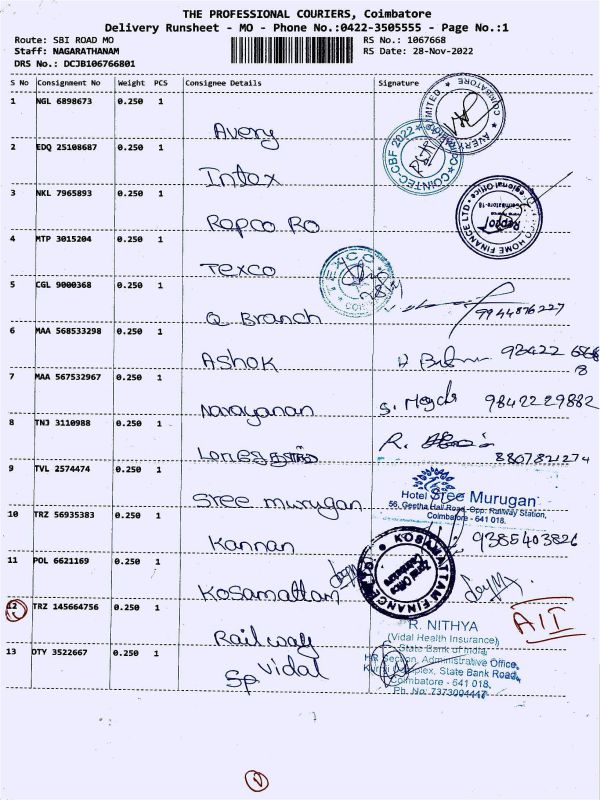 THE PROFESSIONAL COURIERS, Coimbatore
Delivery Runsheet - MO - Phone No.:0422-3505555 - Page No.:1
Route: SBI ROAD MO
RS No.: 1067668
Staff: NAGARATHANAM
RS Date: 28-Nov-2022
DRS No.: DCJB106766801
S No Consignment No Weight PCS Consignee Details Signature
1 NGL 6898673 0.250 1
COIMBATORE
AVERY LIMITED
Avery
2 EDQ 25108687 0.250 1
COINTEC-CBF 2022
Intex
3 NKL 7965893 0.250 1
CO HOME FINANCE LTD
Regional Office
Repco
Coimbatore-18
Repco RO
4 MTP 3015204 0.250 1
TEXCO
Texco
5 CGL 9000368 0.250 1
9944876227
Q Branch
6 MAA 568533298 0.250 1
93422
Ashok
7 MAA 567532967 0.250 1
9842229882
Narayanan
8 TNJ 3110988 0.250 1
R.
8807821274
9 TVL 2574474 0.250 1
Hotel Sree Murugan
56, Geetha Hall Road, Opp: Railway Station,
Coimbatore - 641 018.
Sree murugan
10 TRZ 56935383 0.250 1
9385403826
Kannan
11 POL 6621169 0.250 1
KOSAMATTAM FINANCE
Coimbatore
Kosamattam
12 TRZ 145664756 0.250 1
AII
R. NITHYA
(Vidal Health Insurance)
State Bank of India,
Railway
13 DTY 3522667 0.250 1
HR Section, Administrative Office,
Complex, State Bank Road,
Coimbatore - 641 018.
Ph. No: 7373004447
Vidal
Sp